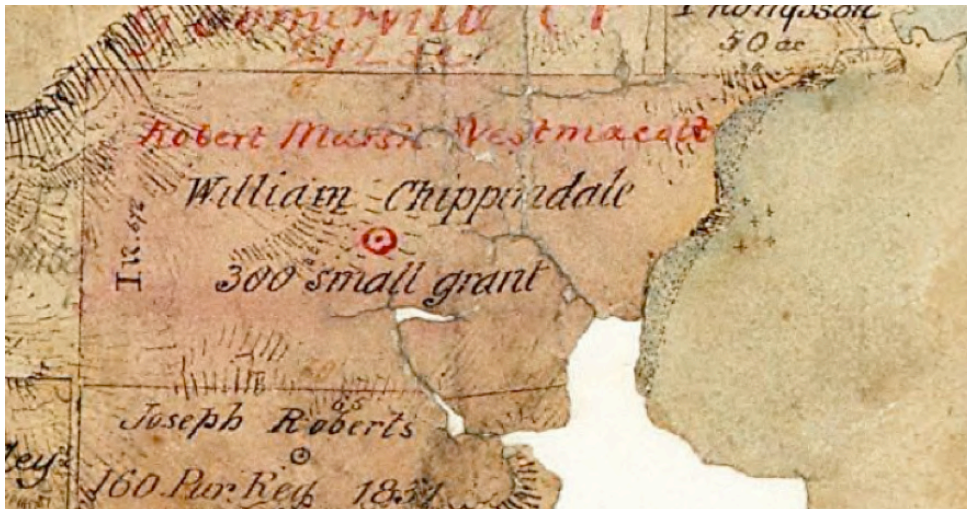 Somerville
Thompsson
50 ac
Robert Marsh Westmacott
William Chippindale
300 small grant
Joseph Roberts
65
160 Pur. Reg. 1831